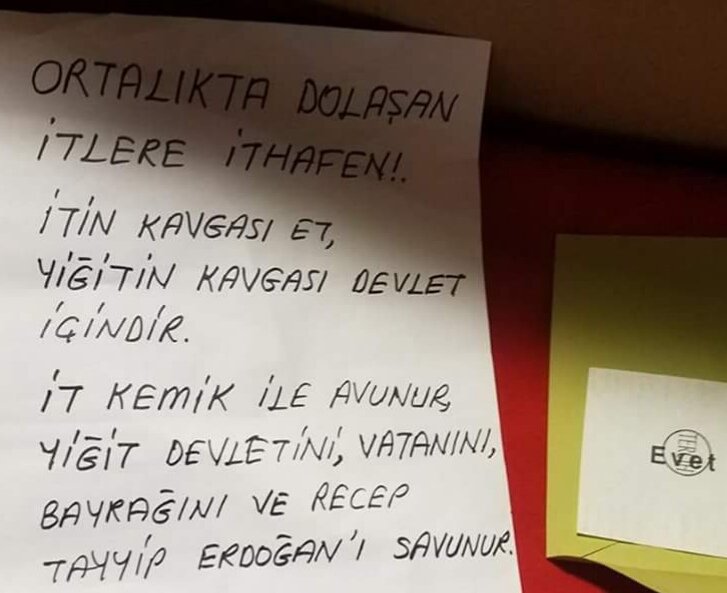 ORTALIKTA DOLAŞAN
İTLERE İTHAFEN!.
İTİN KAVGASI ET,
YİĞİTİN KAVGASI DEVLET
İÇİNDİR.
İT KEMİK İLE AVUNUR,
YİĞİT DEVLETİNİ, VATANINI,
BAYRAĞINI VE RECEP
TAYYİP ERDOĞAN'I SAVUNUR.
Evet